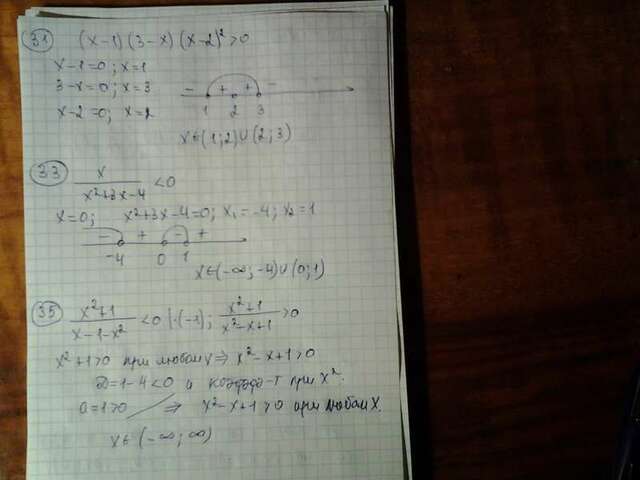 31 (x-1)(3-x)(x-2)²>0
x-1=0; x=1
3-x=0; x=3
x-2=0; x=2
- + + -
1 2 3
x∈(1;2)∪(2;3)
33 x/(x²+3x-4) <0
x=0; x²+3x-4=0; x₁=-4; x₂=1
- + - +
-4 0 1
x∈(-∞;-4)∪(0;1)
35 (x²+1)/(x-1-x²) <0 |·(-1); (x²+1)/(x²-x+1) >0
x²+1>0 при любом x ⇒ x²-x+1>0
D=1-4<0 и коэфф-т при x²
a=1>0 ⇒ x²-x+1>0 при любом x.
x∈(-∞;∞)